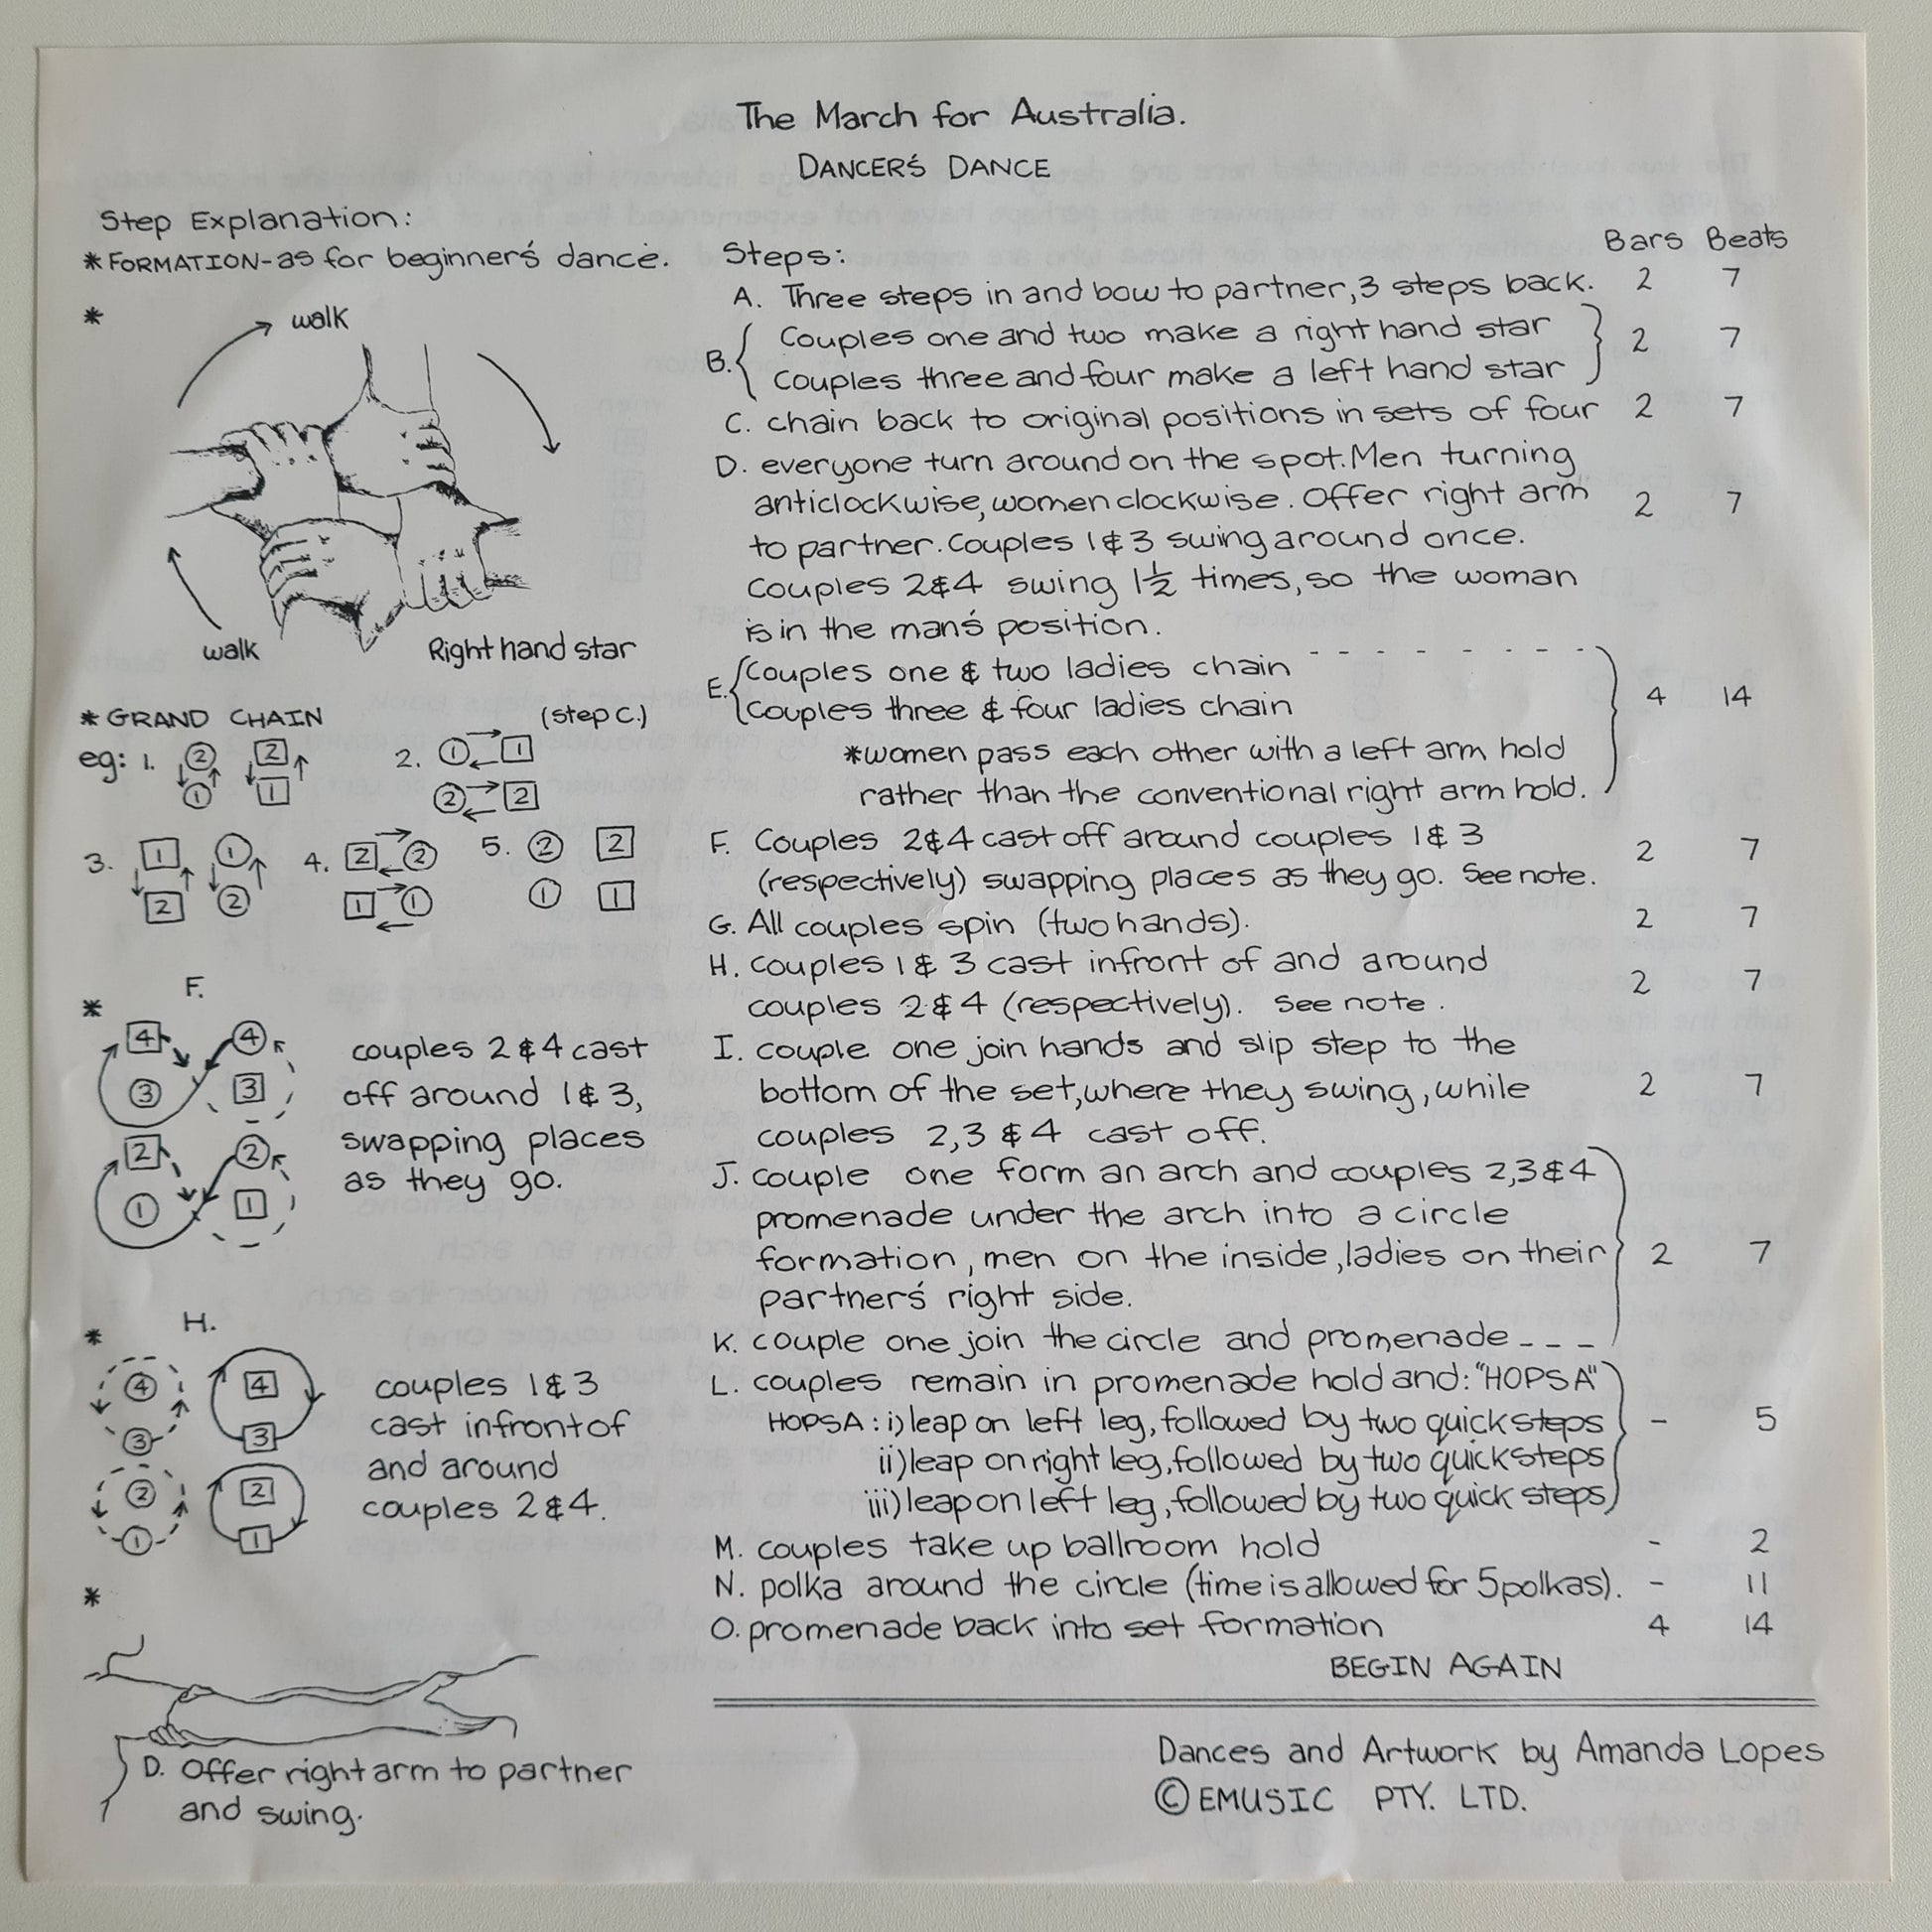 The March for Australia.
DANCER'S DANCE
Step Explanation:
* FORMATION - as for beginner's dance.
*
walk
walk
Right hand star
* GRAND CHAIN (step C.)
eg: 1. 2 2 1 1
2. 1 1 2 2
3. 1 1 2 2
4. 2 2 1 1
5. 2 2 1 1
F.
*
4 4
3 3
2 2
1 1
couples 2 & 4 cast
off around 1 & 3,
swapping places
as they go.
H.
*
4 4
3 3
2 2
1 1
couples 1 & 3
cast infront of
and around
couples 2 & 4.
*
D. Offer right arm to partner
and swing.
Steps: Bars Beats
A. Three steps in and bow to partner, 3 steps back. 2 7
B. Couples one and two make a right hand star
Couples three and four make a left hand star 2 7
C. chain back to original positions in sets of four 2 7
D. everyone turn around on the spot. Men turning
anticlockwise, women clockwise. Offer right arm 2 7
to partner. Couples 1 & 3 swing around once.
Couples 2 & 4 swing 1½ times, so the woman
is in the man's position.
E. Couples one & two ladies chain - - - - - - - -
Couples three & four ladies chain 4 14
*women pass each other with a left arm hold
rather than the conventional right arm hold.
F. Couples 2 & 4 cast off around couples 1 & 3 2 7
(respectively) swapping places as they go. See note.
G. All couples spin (two hands). 2 7
H. couples 1 & 3 cast infront of and around 2 7
couples 2 & 4 (respectively). See note.
I. couple one join hands and slip step to the
bottom of the set, where they swing, while 2 7
couples 2, 3 & 4 cast off.
J. couple one form an arch and couples 2, 3 & 4
promenade under the arch into a circle
formation, men on the inside, ladies on their 2 7
partner's right side.
K. couple one join the circle and promenade - - -
L. couples remain in promenade hold and: "HOPSA"
HOPSA: i) leap on left leg, followed by two quick steps - 5
ii) leap on right leg, followed by two quick steps
iii) leap on left leg, followed by two quick steps
M. couples take up ballroom hold - 2
N. polka around the circle (time is allowed for 5 polkas). - 11
O. promenade back into set formation 4 14
BEGIN AGAIN
Dances and Artwork by Amanda Lopes
© EMUSIC PTY. LTD.